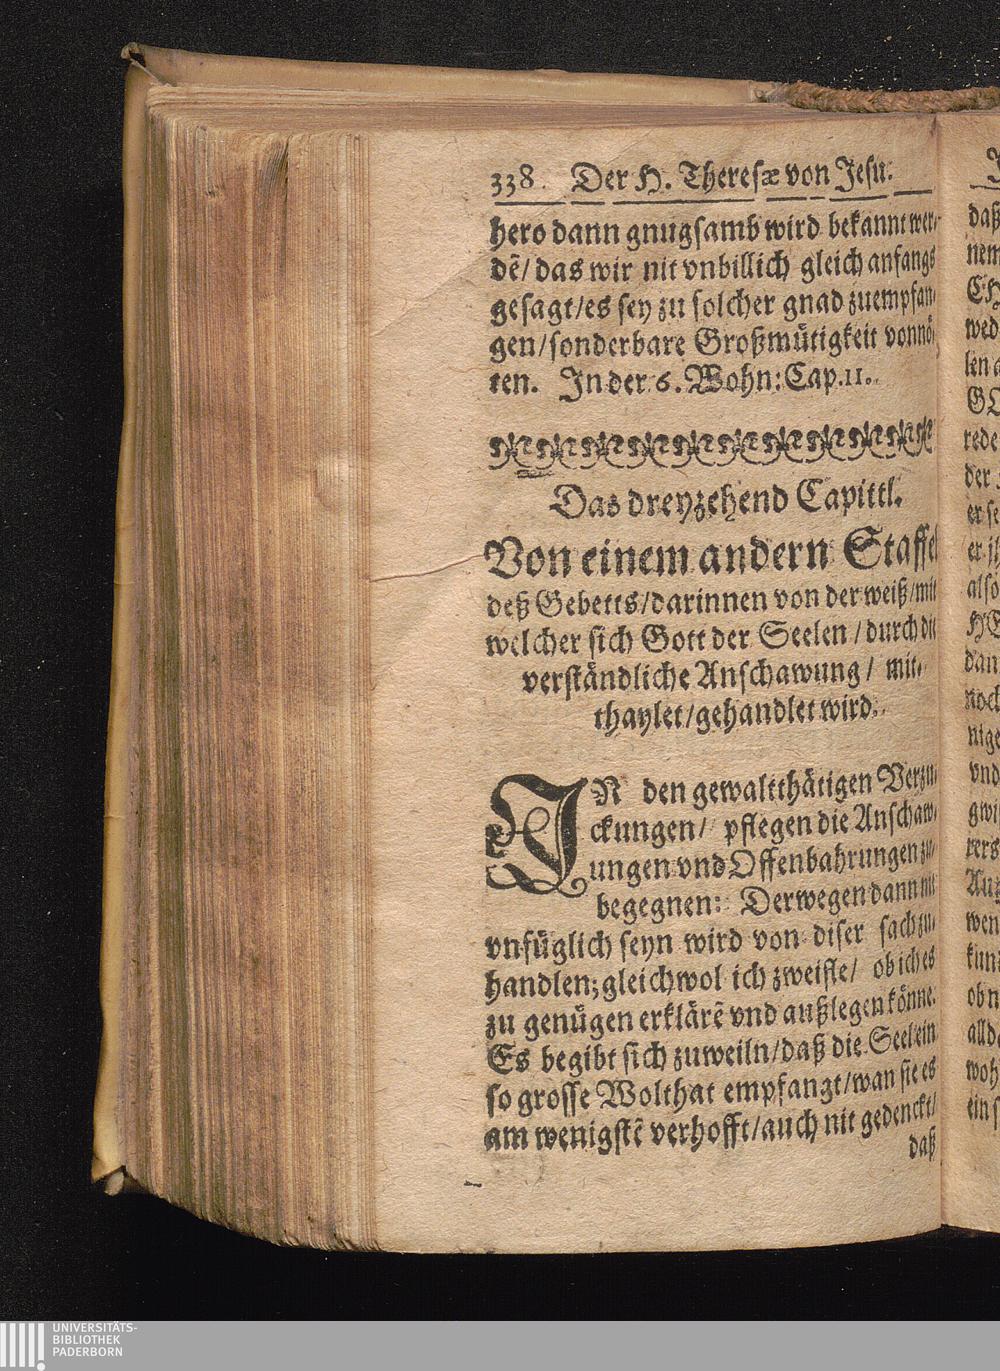 338. Der H. Theresæ von Jesu.
hero dann gnugsamb wird bekannt wer-
dẽ/ das wir nit vnbillich gleich anfangs
gesagt/es sey zu solcher gnad zuempfan-
gen/sonderbare Großmütigkeit vonnö-
ten. In der 6. Wohn: Cap. 11.
Das dreyzehend Capittl.
Von einem andern Staffel
deß Gebetts/darinnen von der weiß/mit
welcher sich Gott der Seelen/durch die
verständliche Anschawung/ mit-
thaylet/gehandlet wird.
IN den gewaltthätigen Verzu-
ckungen/ pflegen die Anschaw-
ungen vnd Offenbahrungen zu-
begegnen: Derwegen dann nit
vnfüglich seyn wird von diser sach zu-
handlen; gleichwol ich zweifle/ ob ich es
zu genügen erklärẽ vnd außlegen könne.
Es begibt sich zuweiln/daß die Seel ein
so grosse Wolthat empfangt/wan sie es
am wenigstẽ verhofft/auch nit gedenckt/
daß
daß
nem
wed
len a
rede
der
er se
also
dan
noch
nige
vnd
gwi
rers
wen
kun
ob n
alld
woh
ein s
UNIVERSITÄTS-
BIBLIOTHEK
PADERBORN